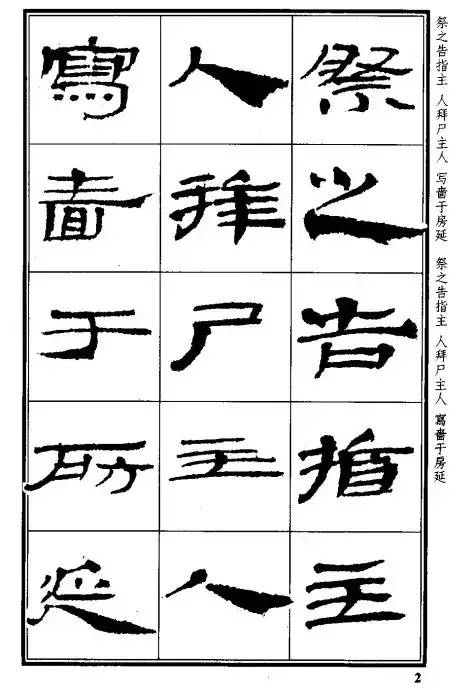 祭之告指主 人拜尸主人 写啬于房延 祭之告指主 人拜尸主人 寫嗇于房延
祭之告指主
人拜尸主人
寫嗇于房延
2